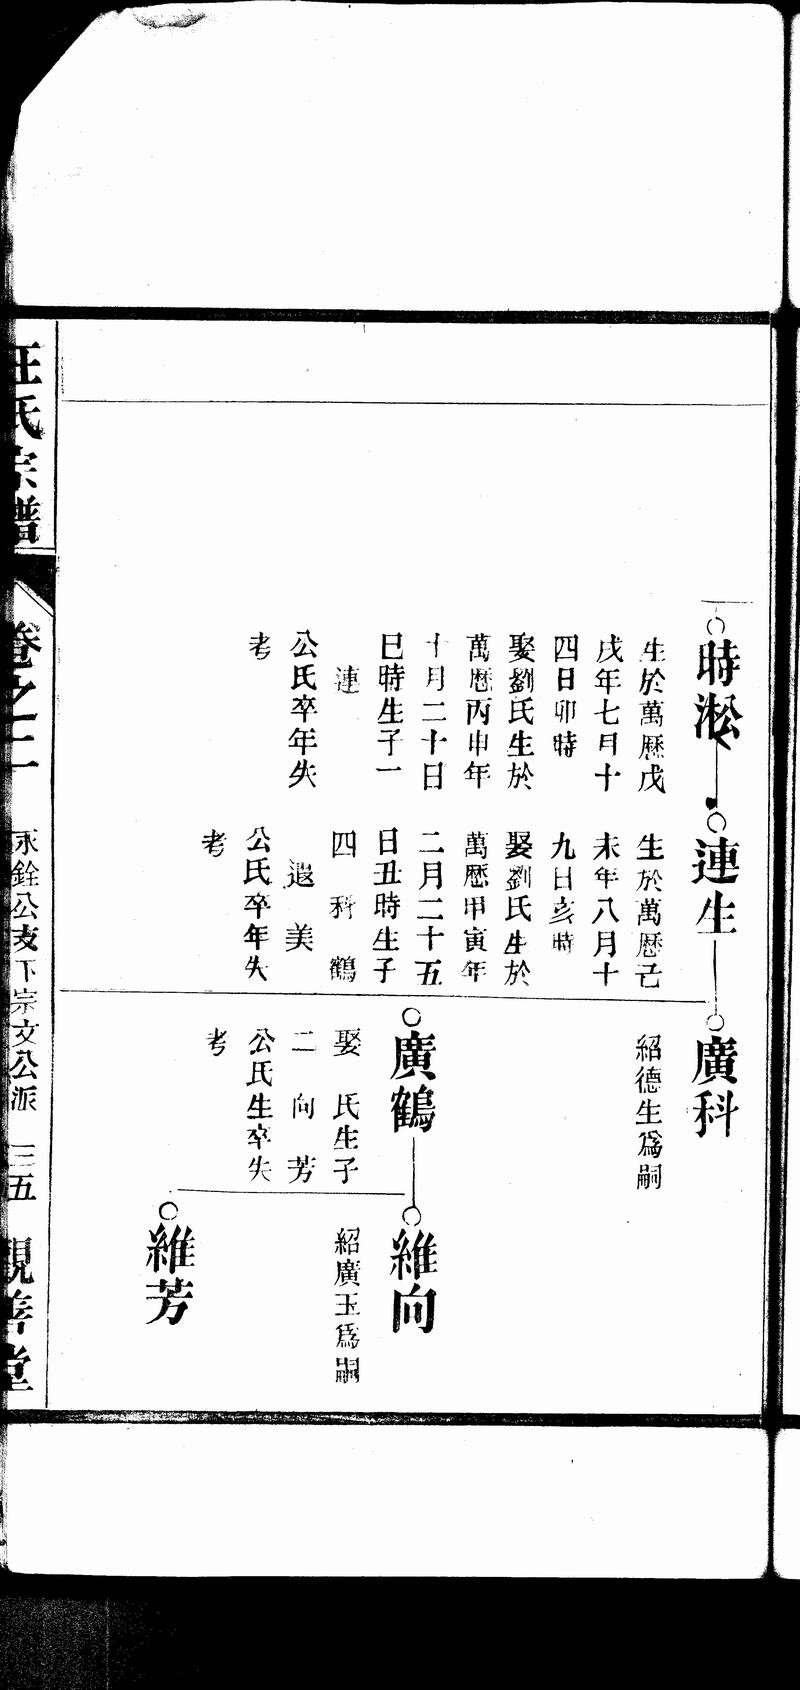 時淞
生於萬曆戊
戌年七月十
四日卯時
娶劉氏生於
萬曆丙申年
十月二十日
巳時生子一
連
公氏卒年失
考
連生
生於萬曆己
未年八月十
九日亥時
娶劉氏生於
萬曆甲寅年
二月二十五
日丑時生子
四 科 鶴
遐 美
公氏卒年失
考
廣科
紹德生爲嗣
廣鶴
娶 氏生子
二 向 芳
公氏生卒失
考
維向
紹廣玉爲嗣
維芳
汪氏宗譜
卷之二
永銓公支下宗文公派
三五
親善堂